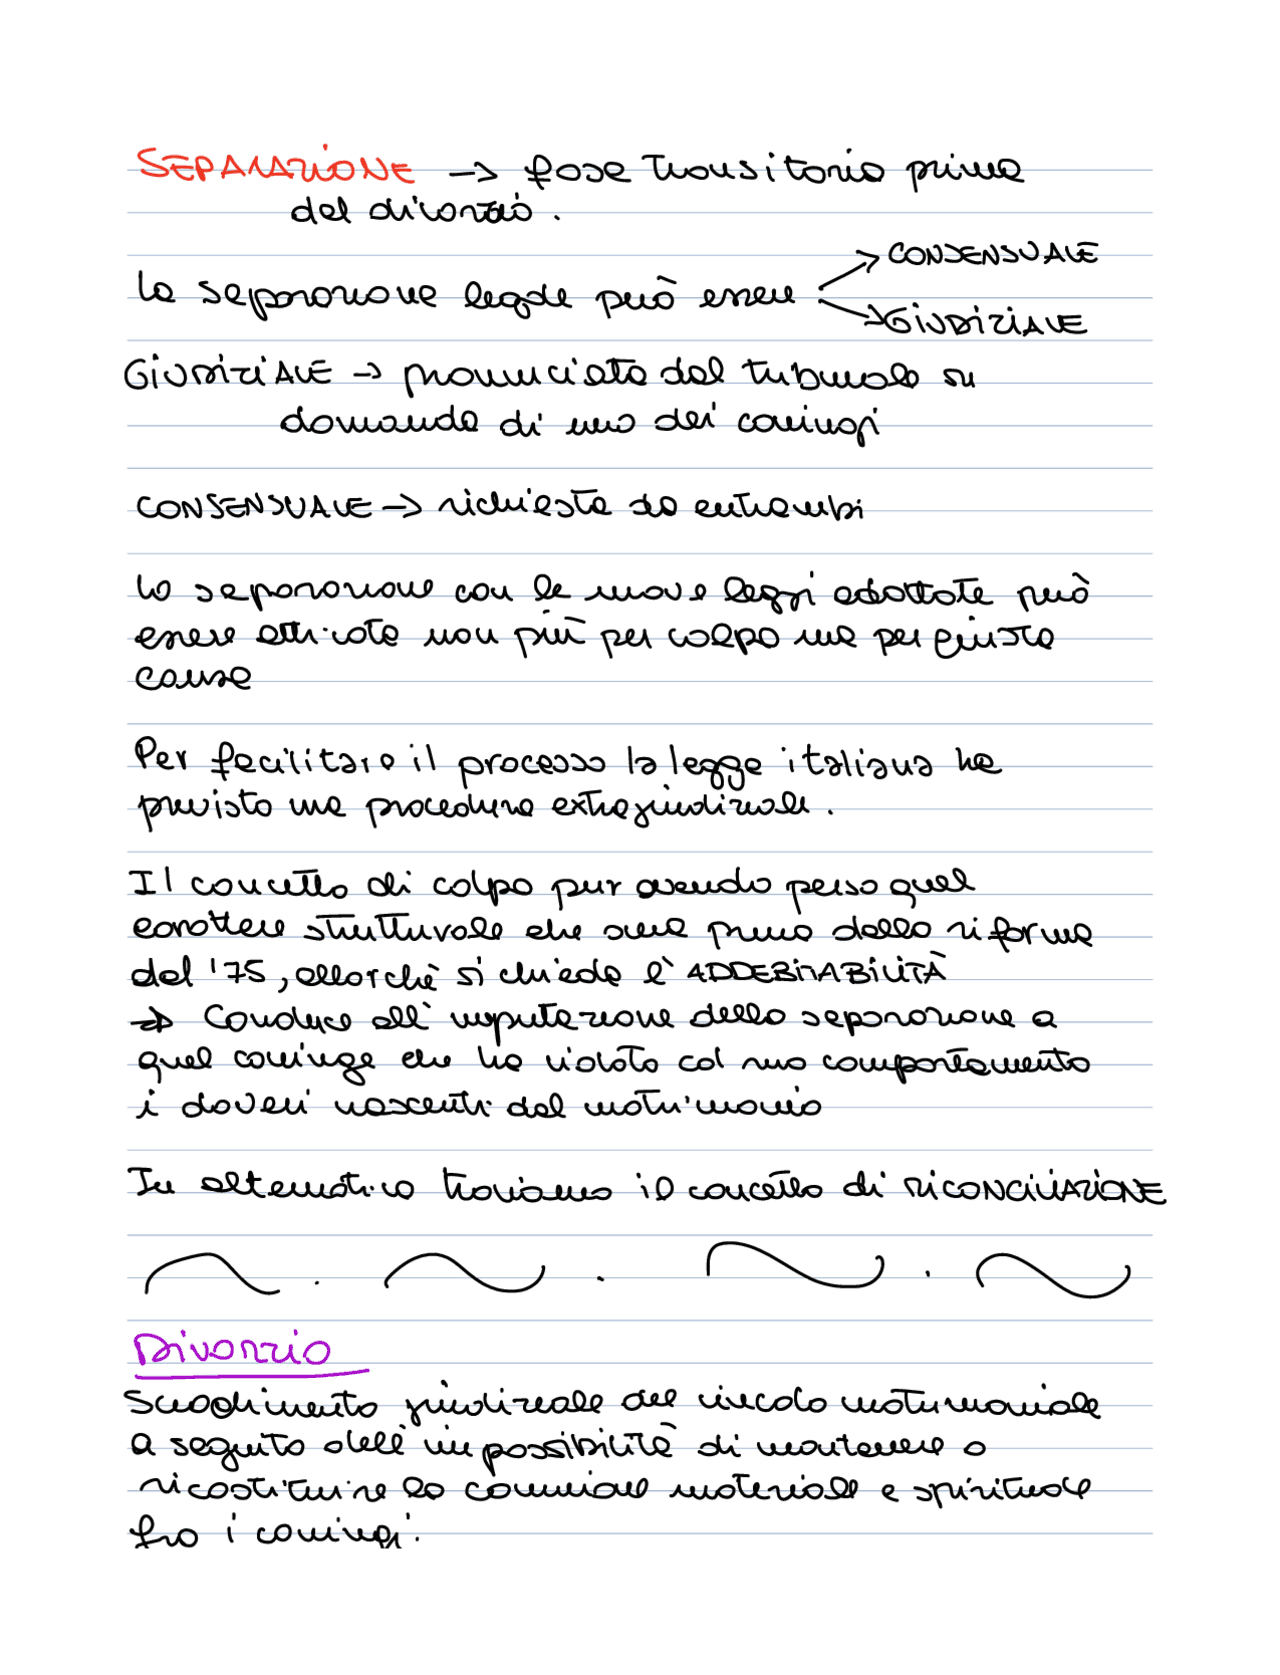 SEPARAZIONE → fase transitoria prima
del divorzio.
La separazione legale può essere → CONSENSUALE
→ GIUDIZIALE
GIUDIZIALE → pronunciata dal tribunale su
domanda di uno dei coniugi
CONSENSUALE → richiesta da entrambi
La separazione con le nuove leggi adottate può
essere attricata non più per colpa ma per giusta
causa
Per facilitare il processo la legge italiana ha
previsto una procedura extragiudiziale.
Il concetto di colpa pur avendo perso quel
carattere strutturale che aveva prima della riforma
del '75, allorché si chieda l'ADDEBITABILITÀ
→ Conduce all'imputazione della separazione a
quel coniuge che ha violato col suo comportamento
i doveri nascenti dal matrimonio
In alternativa troviamo il concetto di RICONCILIAZIONE
Divorzio
Scioglimento giudiziale del vincolo matrimoniale
a seguito dell'impossibilità di mantenere o
ricostituire la comunione materiale e spirituale
fra i coniugi.